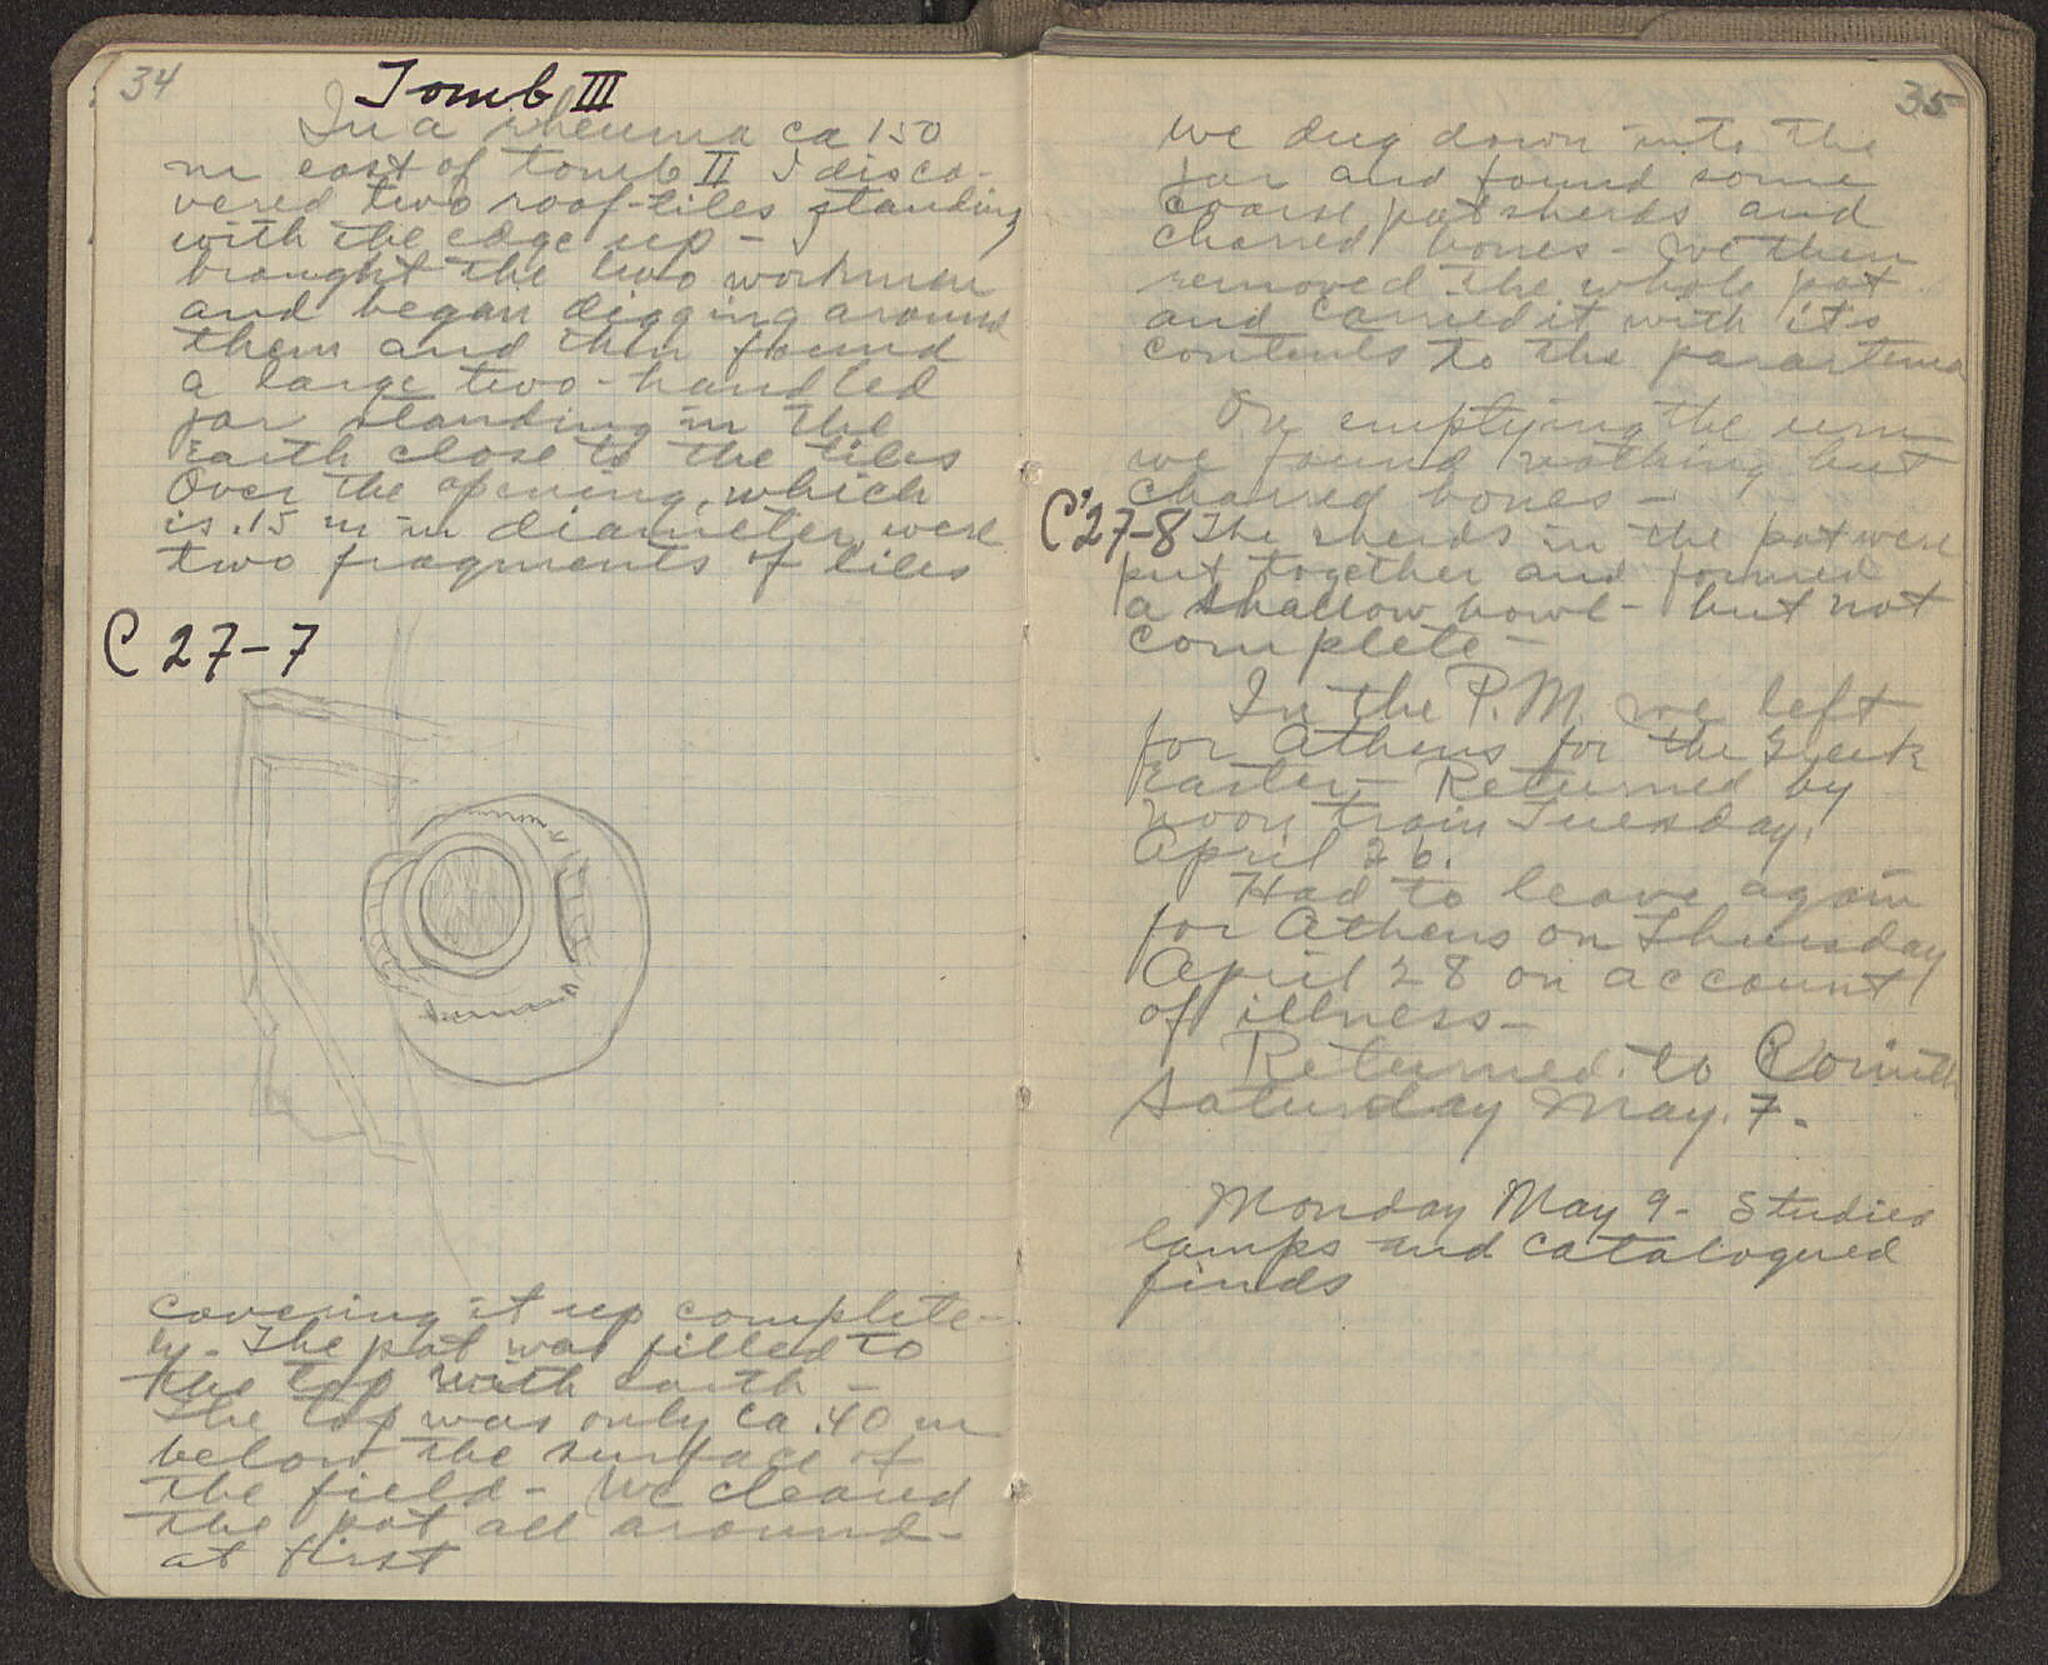 34
Tomb III
In a rheuma ca 150
m east of tomb II I disco-
vered two roof-tiles standing
with the edge up - I
brought the two workmen
and began digging around
them and then found
a large two-handled
jar standing in the
Earth close to the tiles
Over the opening, which
is .15 m in diameter, were
two fragments of tiles
C 27-7
covering it up complete-
ly - The pot was filled to
the top with earth -
The top was only ca .40 m
below the surface of
the field - We cleared
the pot all around -
at first
35
we dug down into the
jar and found some
coarse potsherds and
charred bones - We then
removed the whole pot
and carried it with its
contents to the parartema
On emptying the urn
we found nothing but
charred bones -
C 27-8 The sherds in the pot were
put together and formed
a shallow bowl - but not
complete -
In the P.M. we left
for Athens for the Greek
Easter - Returned by
noon train Tuesday,
April 26.
Had to leave again
for Athens on Thursday
April 28 on account
of illness -
Returned to Corinth
Saturday May 7 -
Monday May 9 - Studied
lamps and catalogued
finds